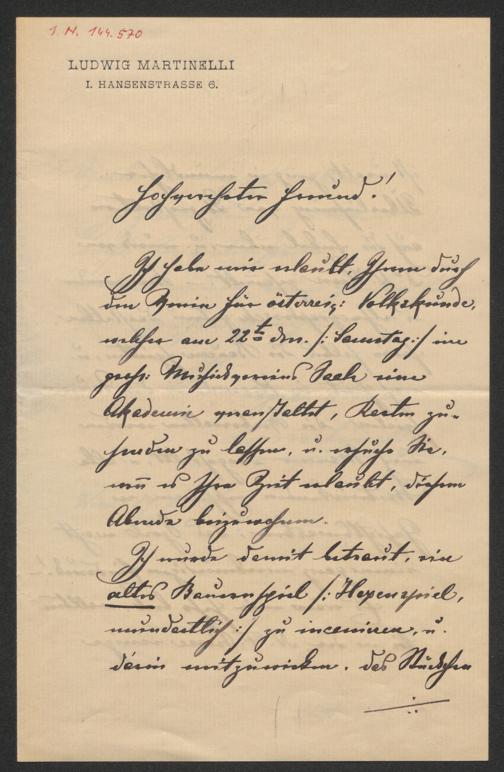 I. N. 144.570
LUDWIG MARTINELLI
I. HANSENSTRASSE 6.
Hochverehrter Freund!
Ich habe mir erlaubt, Ihnen durch
den Verein für österrei: Volkskunde,
welcher am 22t dM. /: Sonntag :/ im
groß: Musikvereins Saale eine
Akademie veranstaltet, Karten zu-
senden zu lassen, u. ersuche Sie,
wenn es Ihre Zeit erlaubt, diesem
Abende beizuwohnen.
Ich wurde damit betraut, ein
altes Bauernspiel /: Hexenspiel,
mundartlich :/ zu inceniren, u.
darin mitzuwirken. Das Stückchen